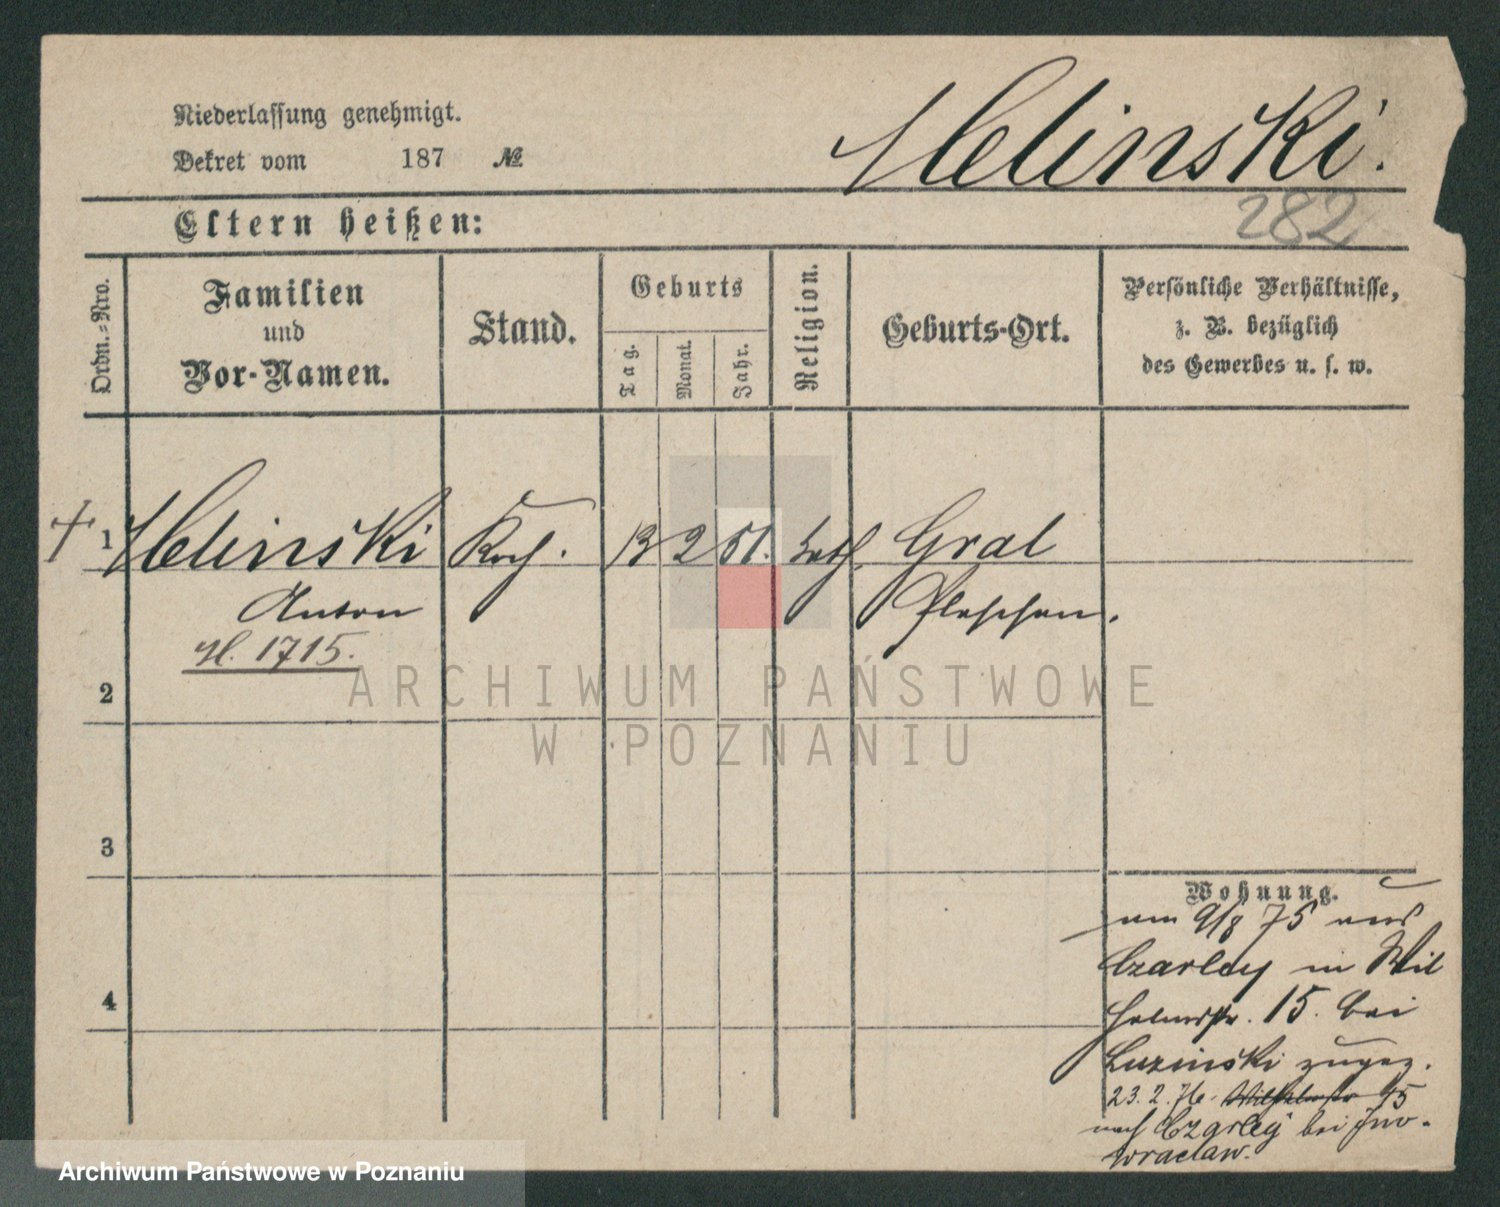 Niederlassung genehmigt.
Dekret vom 187 №
Melinski.
282
Eltern heißen:
Ordn.=Nro.
Familien
und
Vor-Namen.
Stand.
Geburts
Tag.
Monat.
Jahr.
Religion.
Geburts-Ort.
Persönliche Verhältnisse,
z. B. bezüglich
des Gewerbes u. s. w.
+ 1 Melinski Koch. 13 2 51. kath. Gral
Anton Pleschen.
1715.
2
3
4
Wohnung.
am 9/8 75 aus
Czarley in Wil
helmstr. 15. bei
Luzinski zugez.
23. 2. 76. Wilhelmstr 15
nach Czarley bei Ino-
wraclaw.
ARCHIWUM PAŃSTWOWE
W POZNANIU
Archiwum Państwowe w Poznaniu